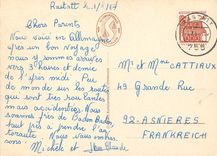 Rastatt le 1/8/67
Chers Parents
Nous voici en Allemagne
après un bon voyage
Nous y sommes arrivés
vers 3 heures et demie
de l'après midi. Peu
de monde sur les routes
qui sont très roulantes
mais accidentées. Nous
sommes près de Baden Baden
Tout près à prendre l'
autoroute. Nous vous embrassons
Michèle et Jean Claude
Mr et Mme CATTIAUX
49 Grande Rue
92-ASNIERES
FRANKREICH